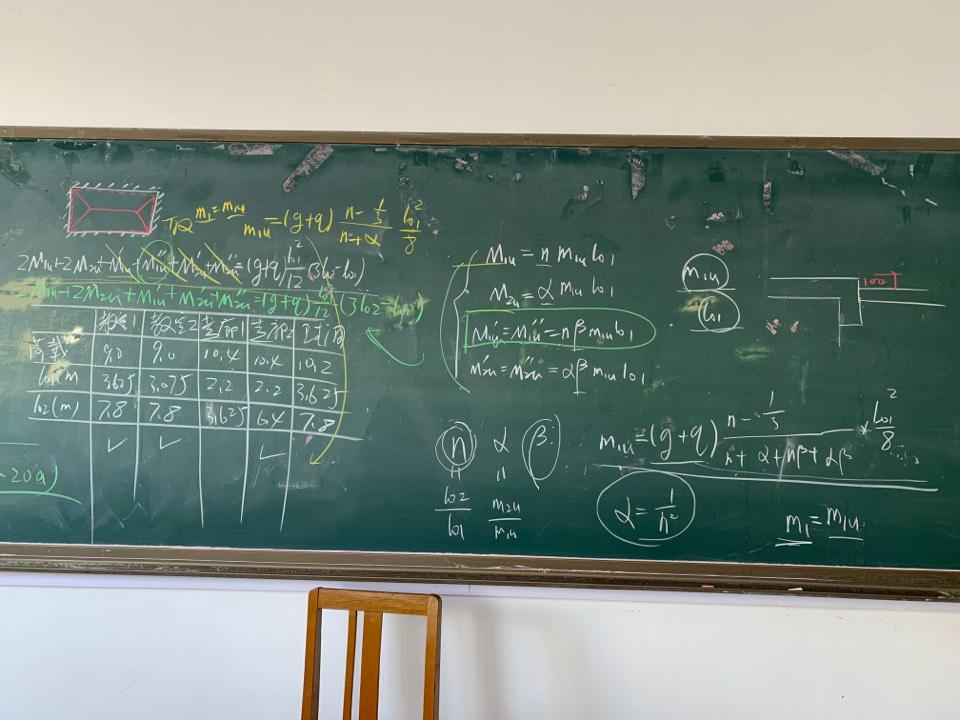 m₁=m₁u
m₁u =(g+q) (n-1/3)/(n+α) l01²/8
2M₁u+2M₂u+M₁u'+M₁u''+M₂u'+M₂u''=(g+q) l01²/12 (3l02-l01)
2M₁u+2M₂u+M₁u'+M₁u''M₂u'M₂u''=(g+q) l01²/12 (3l02-l01)
教室1 教室2 走廊1 走廊2
荷载 9.0 9.0 10.4 10.4 10.2
l01(m 3.625 3.075 2.2 2.2 3.625
l02(m) 7.8 7.8 3.625 6.4 7.8
✓ ✓ ✓
-20a)
M₁u = n m₁u l01
M₂u = α m₁u l01
M₁u'=M₁u''=nβ m₁u l01
M₂u'=M₂u''=αβ m₁u l01
n α β
= =
l02/l01 m₂u/m₁u
m₁u
l01
100
m₁u=(g+q) (n-1/3)/(n+α+nβ+αβ) * l01²/8
α=1/n²
m₁=m₁u